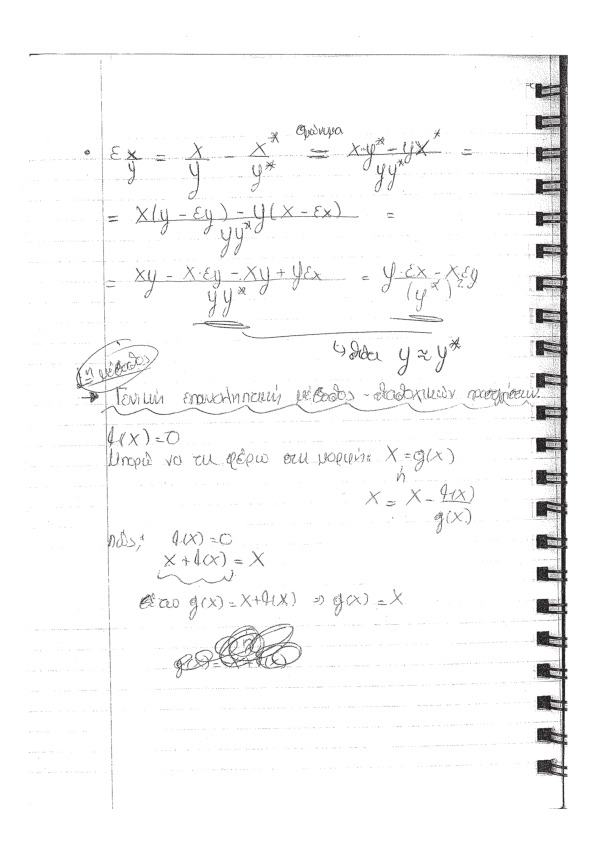 ομώνυμα
• ε x/y = x/y - x*/y* = (x·y* - yx*)/(yy*) =
= (x(y - εy) - y(x - εx))/(yy*) =
= (xy - x·εy - xy + yεx)/(yy*) = (y·εx - x·εy)/(y*)²
y ≈ y*
1η μέθοδος
→ Γενική επαναληπτική μέθοδος - διαδοχικών προσεγγίσεων.
f(x)=0
Μπορώ να τη φέρω στη μορφή: x = g(x)
ή
x = x - f(x)/g(x)
πώς; f(x)=0
x + f(x) = x
θέτω g(x) = x+f(x) ⇒ g(x) = x